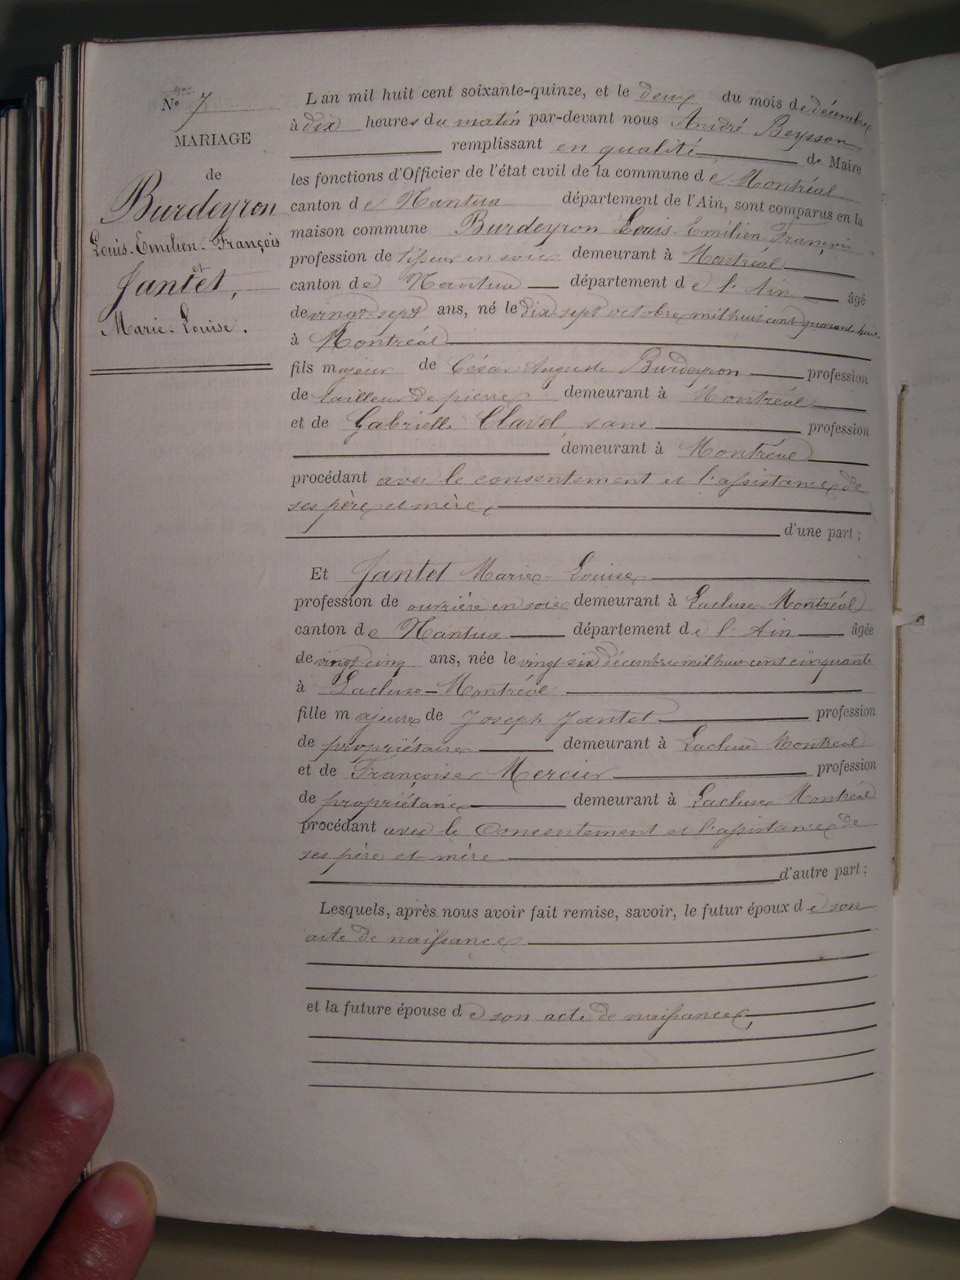 Nº 7
MARIAGE
de
Burdeyron
Louis-Emilien-François
et
Jantet,
Marie-Louise.
L'an mil huit cent soixante-quinze, et le deux du mois de décembre
à dix heures du matin par-devant nous André Beysson
remplissant en qualité de Maire
les fonctions d'Officier de l'état civil de la commune de Montréal
canton de Nantua département de l'Ain, sont comparus en la
maison commune Burdeyron Louis-Emilien François
profession de tisseur en soie demeurant à Montréal
canton de Nantua département de l'Ain âgé
de vingt-sept ans, né le dix sept octobre mil huit cent quarante huit
à Montréal
fils majeur de César Auguste Burdeyron profession
de tailleur de pierre demeurant à Montréal
et de Gabrielle Clavel sans profession
demeurant à Montréal
procédant avec le consentement et l'assistance de
ses père et mère,
d'une part ;
Et Jantet Marie Louise
profession de ouvrière en soie demeurant à Lacluse-Montréal
canton de Nantua département de l'Ain âgée
de vingt cinq ans, née le vingt six décembre mil huit cent cinquante
à Lacluse-Montréal
fille majeure de Joseph Jantet profession
de propriétaire demeurant à Lacluse Montréal
et de Françoise Mercier profession
de propriétaire demeurant à Lacluse Montréal
procédant avec le consentement et l'assistance de
ses père et mère
d'autre part ;
Lesquels, après nous avoir fait remise, savoir, le futur époux de son
acte de naissance
et la future épouse de son acte de naissance,